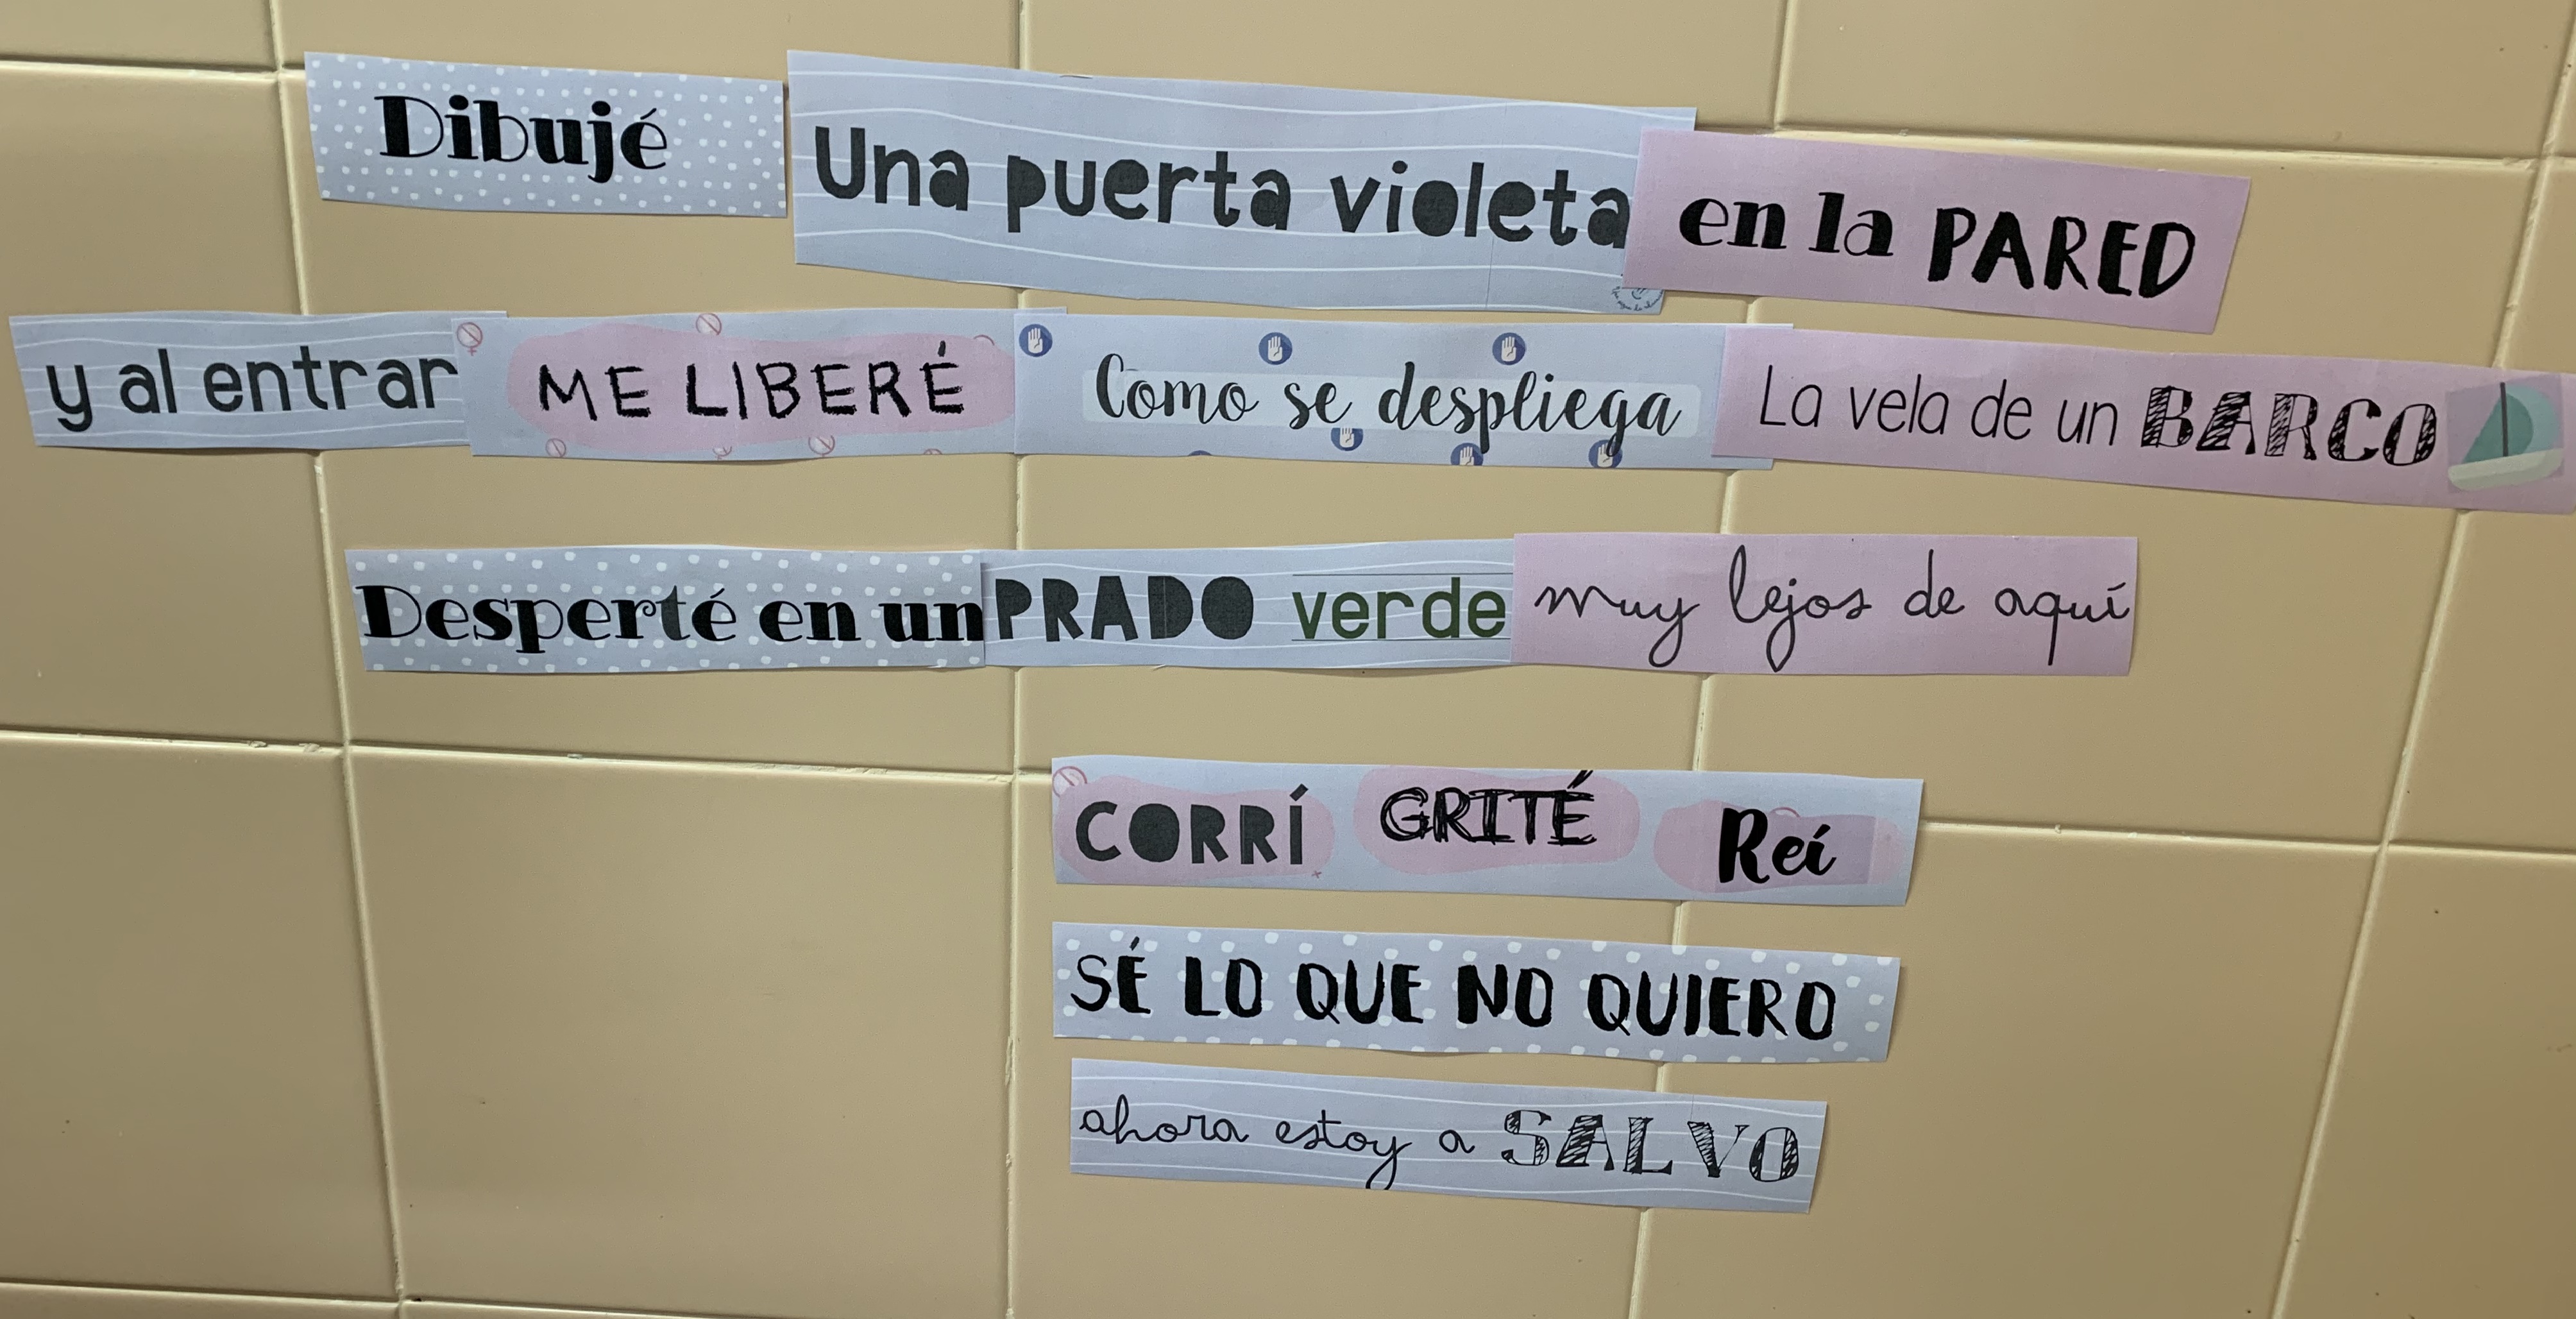 Dibujé Una puerta violeta en la PARED
y al entrar ME LIBERÉ Como se despliega La vela de un BARCO
Desperté en un PRADO verde muy lejos de aquí
CORRÍ GRITÉ Reí
SÉ LO QUE NO QUIERO
ahora estoy a SALVO